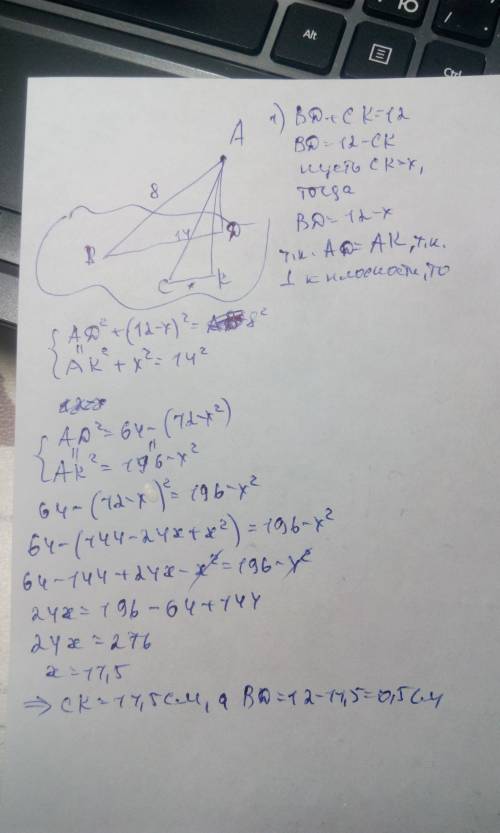 Alt
Ю
Ctrl
A
8
14
B
D
C
K
1) BD+CK=12
BD=12-CK
пусть CK=x,
тогда
BD=12-x
т.к. AD=AK, т.к.
⊥ к плоскости, то
{ AD²+(12-x)²= 8²
"
AK²+x²=14²
{ AD²=64-(12-x²)
" "
AK²=196-x²
64-(12-x)²=196-x²
64-(144-24x+x²)=196-x²
64-144+24x-x²=196-x²
24x=196-64+144
24x=276
x=11,5
⇒ CK=11,5см, а BD=12-11,5=0,5см